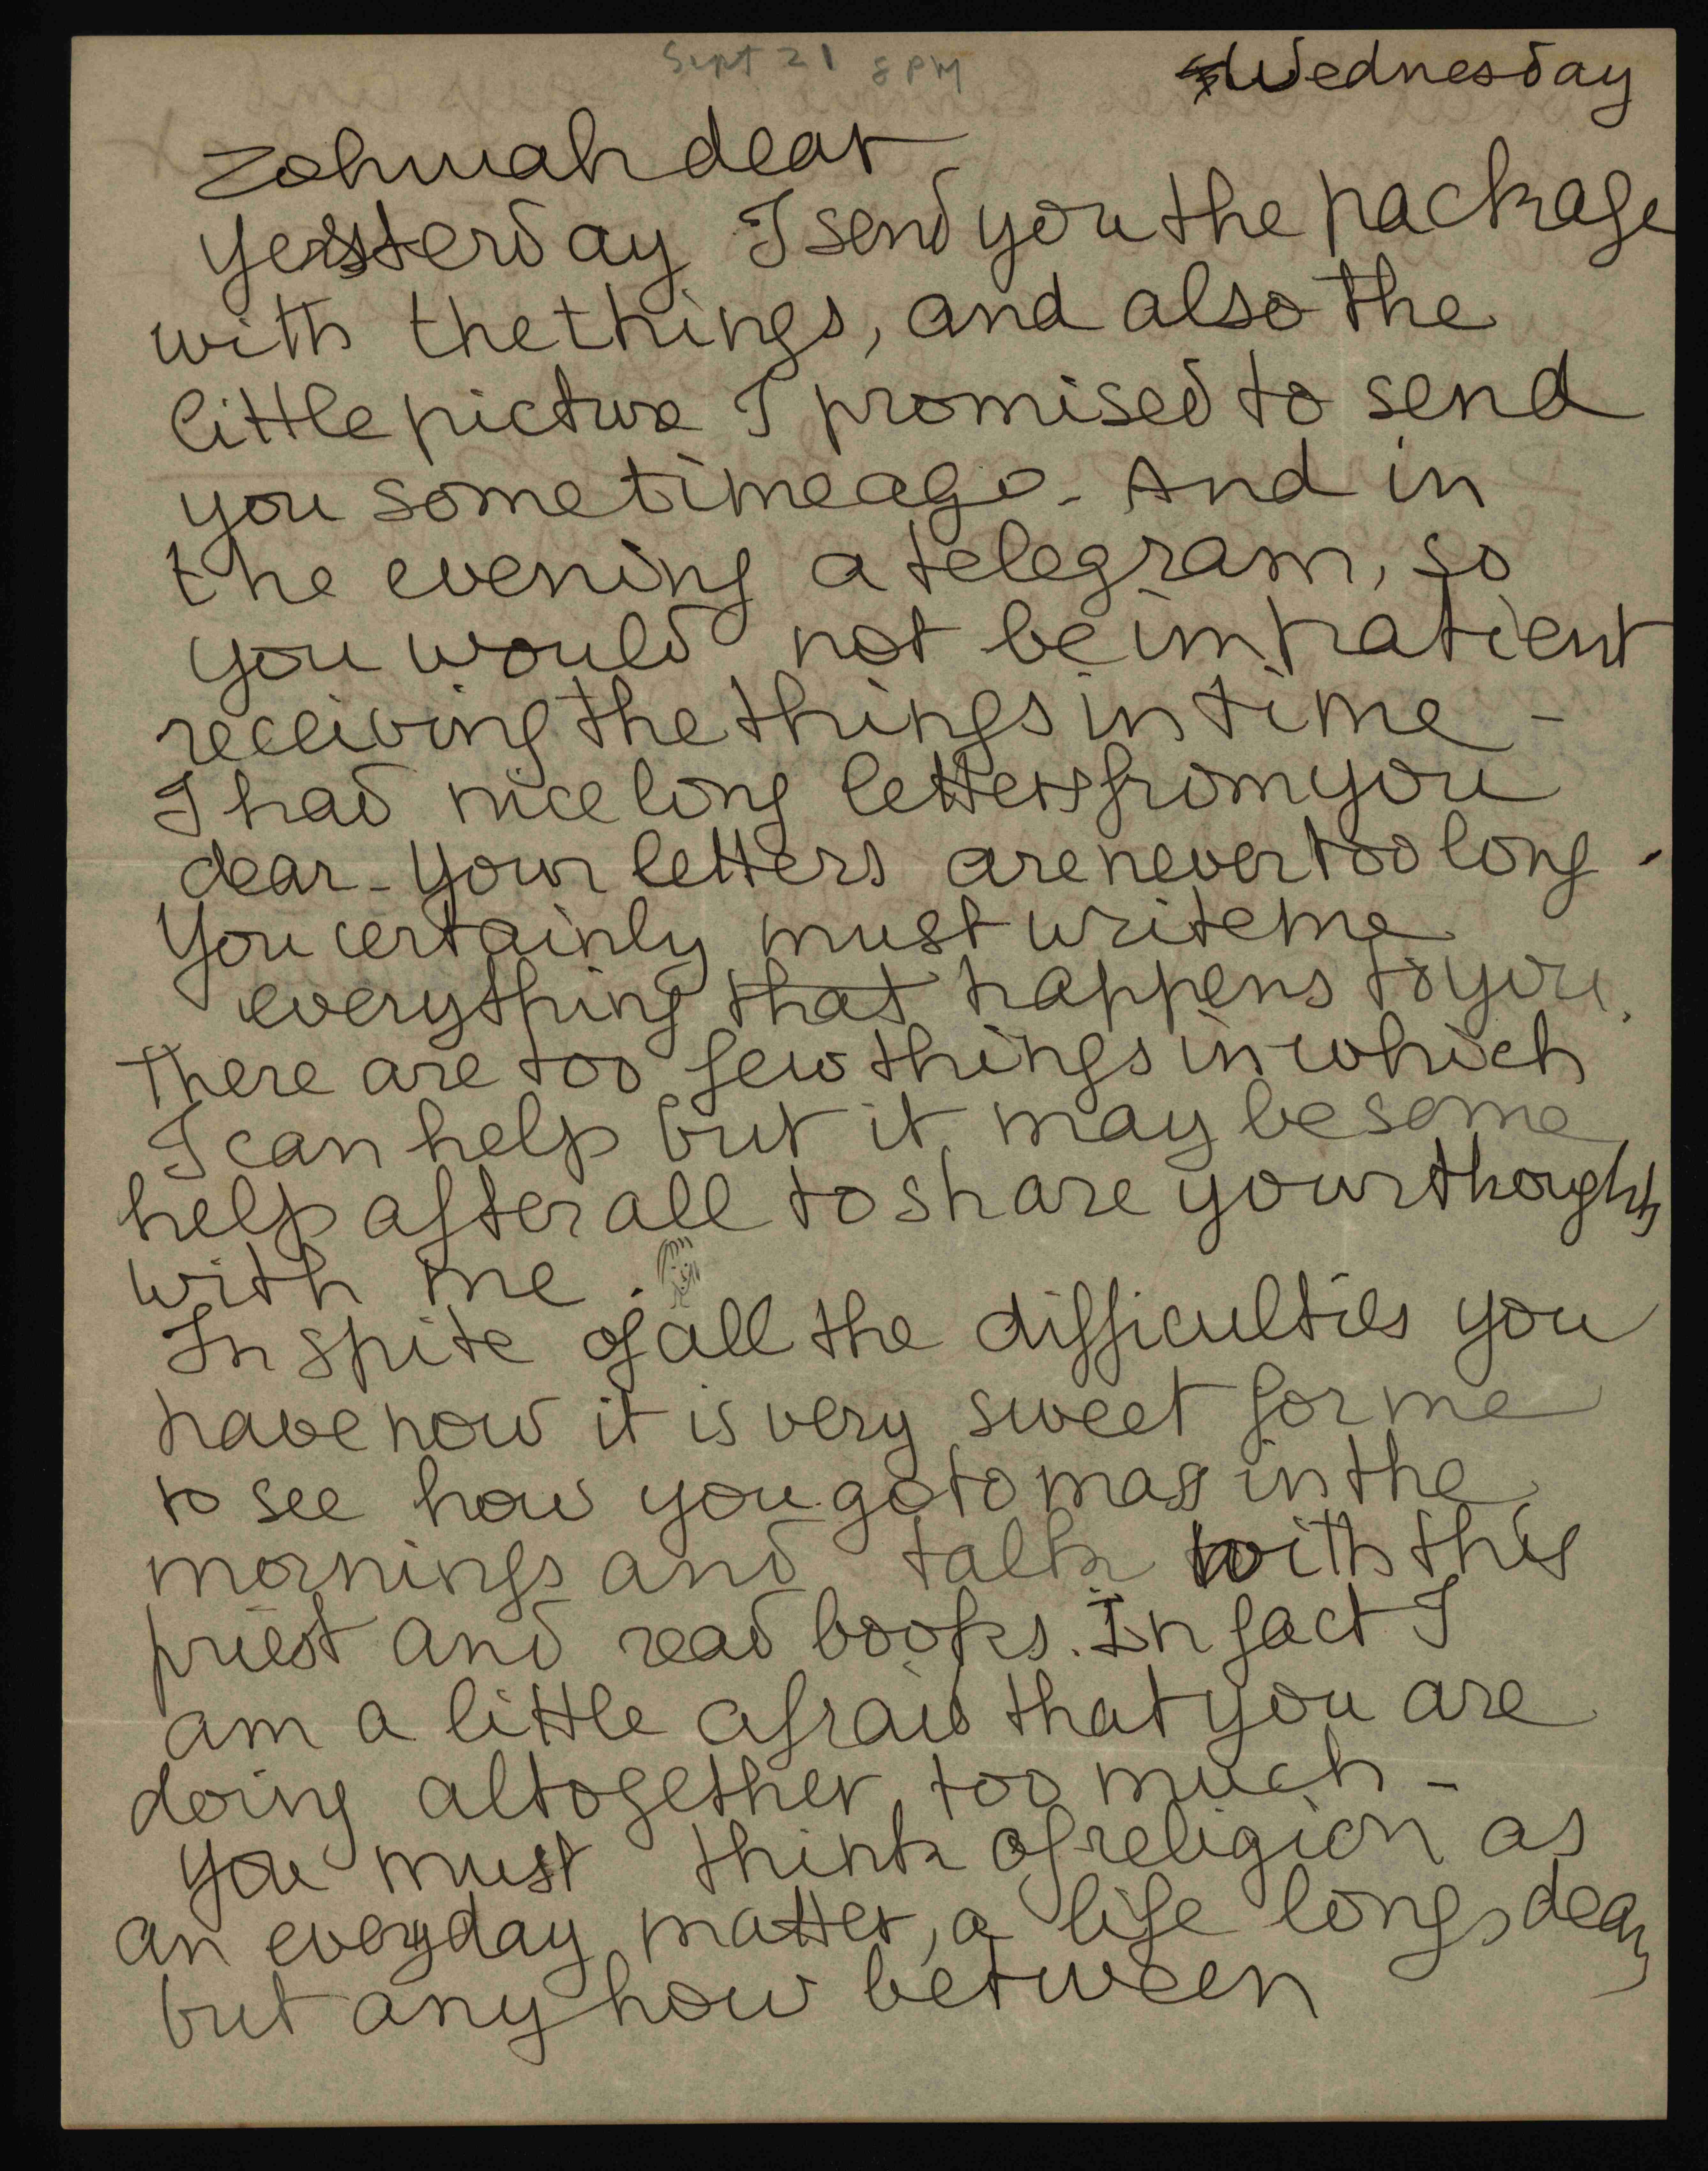 Sept 21 8 PM
Wednesday
Zohmah dear
yersterday I send you the package
with the things, and also the
little picture I promised to send
you some time ago - And in
the evening a telegram, so
you would not be impatient
receiving the things in time -
I had nice long letters from you
dear - your letters are never too long -
You certainly must write me
everything that happens to you.
There are too few things in which
I can help but it may be some
help after all to share your thoughts
with me.
In spite of all the difficulties you
have now it is very sweet for me
to see how you go to mass in the
mornings and talk with this
priest and read books. In fact I
am a little afraid that you are
doing altogether too much -
you must think of religion as
an everyday matter, a life long, dear,
but anyhow between